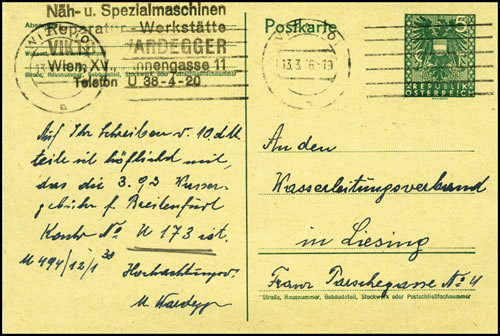 Näh- u. Spezialmaschinen
Reparatur-Werkstätte
VIKTOR WARDEGGER
Wien, XV., nnengasse 11
Telefon U 38-4-20
Straße, Hausnummer, Gebäudeteil, Stockwerk oder Postschließfachnummer
WIEN
13.3
a
Postkarte
WIEN
13.3. 6-19
a
REPUBLIK
ÖSTERREICH
Auf Ihr Schreiben v. 10. d.M.
teile ich höflichst mit,
das die 3.93 Wasser-
gebühr f. Breitenfurt
Konto No U 173 ist.
U 494/12/1 30
Hochachtungsv.
An den
Wasserleitungsverband
in Liesing
Franz Parschegasse No 4
Straße, Hausnummer, Gebäudeteil, Stockwerk oder Postschließfachnummer